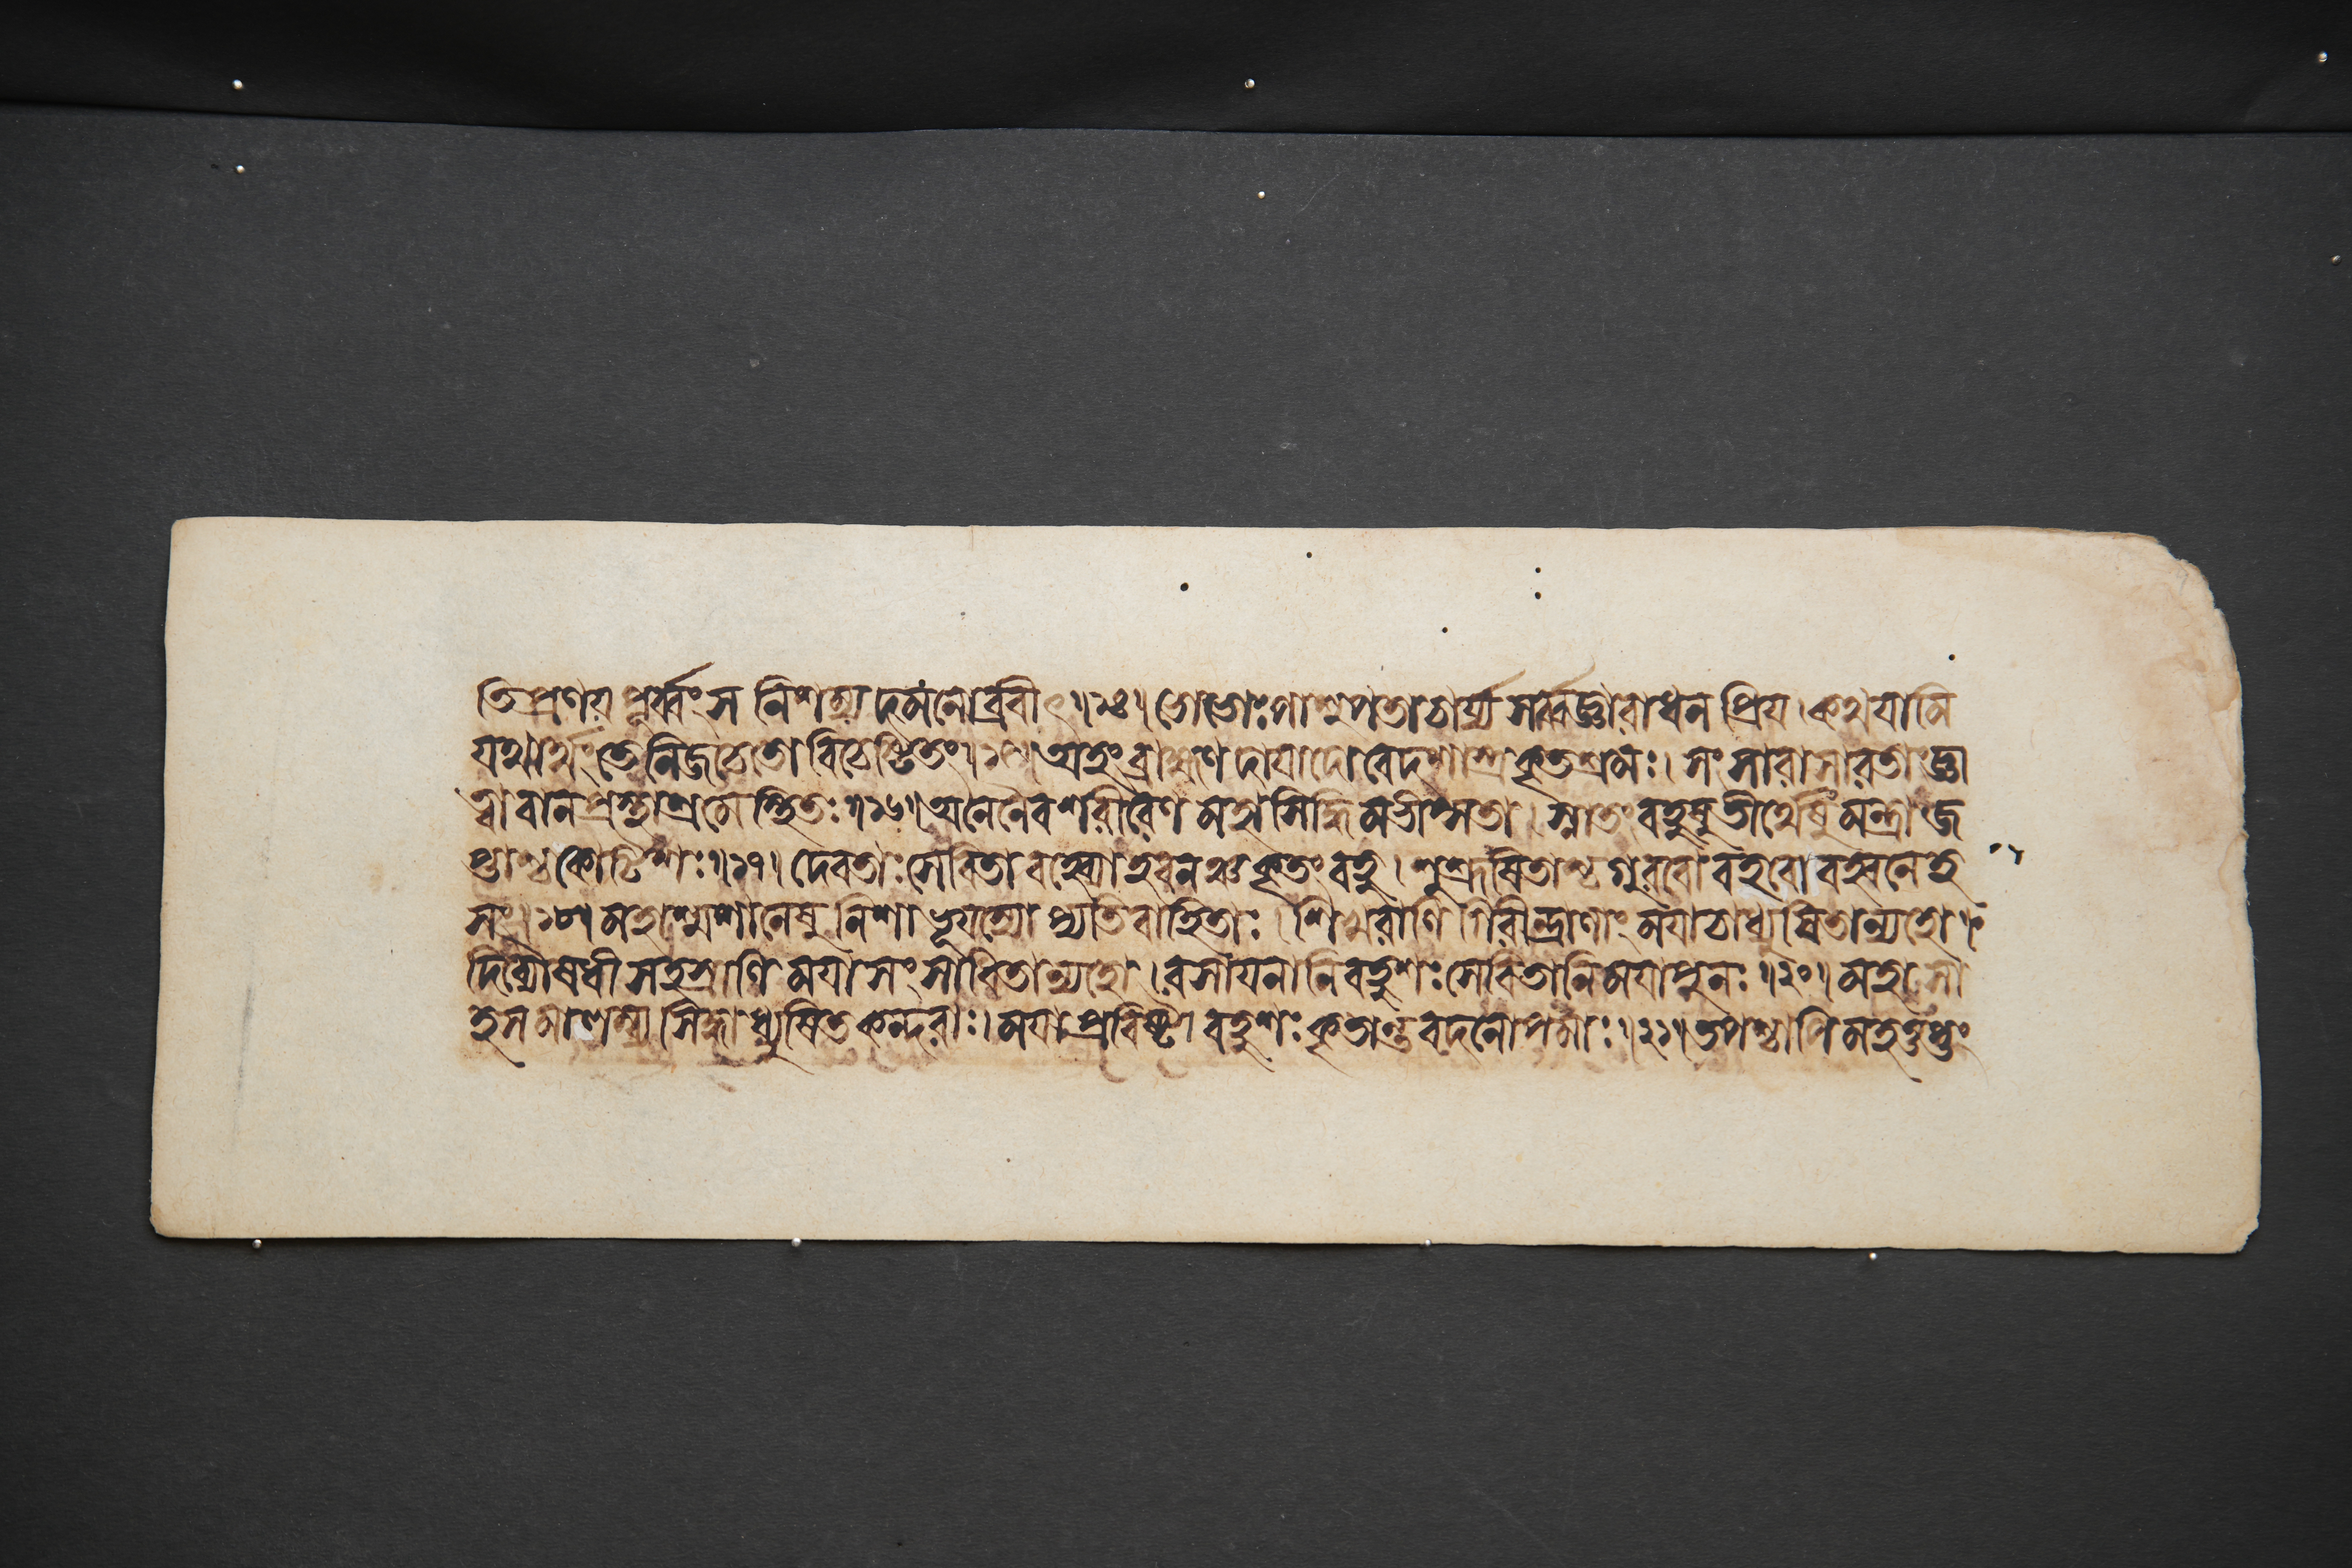 তি প্রণয়পূর্ব্বং স নিশম্য দমনোব্রবীৎ ॥২৪॥ ভো ভোঃ পাশুপতাচার্য্য সর্ব্বজ্ঞারাধনপ্রিয । কথযামি
যথার্থং তে নিজচেতো বিচেষ্টিতং ॥২৫॥ অহং ব্রাহ্মণদাযাদো বেদশাস্ত্রকৃতশ্রমঃ । সংসারাসারতাং জ্ঞা
ত্বা বানপ্রস্থাশ্রমে স্থিতঃ ॥২৬॥ অনেনৈব শরীরেণ মহাসিদ্ধিমভীপ্সতা । স্নাতং বহুষু তীর্থেষু মন্ত্রা জ
প্তাশ্চ কোটিশঃ ॥২৭॥ দেবতাঃ সেবিতা বহ্ব্যো হবনঞ্চ কৃতং বহু । শুশ্রূষিতাশ্চ গুরবো বহবো বহ্বনেহ
সং ॥২৮॥ মহাশ্মশানেষু নিশা ভূযস্যোপ্যতিবাহিতাঃ । শিখরাণি গিরীন্দ্রাণাং মযা চাধ্যুষিতান্যহো ।
দিব্যৌষধীসহস্রাণি মযা সংসাধিতান্যহো । রসাযনানি বহুশঃ সেবিতানি মযা পুনঃ ॥৩০॥ মহাসা
হসমালম্ব্য সিদ্ধাধ্যুষিতকন্দরাঃ । মযা প্রবিষ্টা বহুশঃ কৃতান্তবদনোপমাঃ ॥৩১॥ তপশ্চাপি মহত্তপ্তং